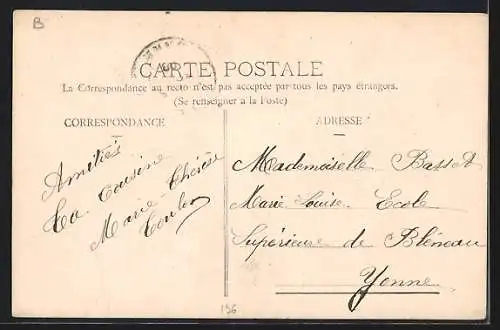 B
CARTE POSTALE
La Correspondance au recto n'est pas acceptée par tous les pays étrangers.
(Se renseigner à la Poste)
CORRESPONDANCE
Amitiés
Ta Cousine
Marie Thérèse
ADRESSE
Mademoiselle Basset
Marie Louise. Ecole
Supérieure de Bléneau
Yonne
156